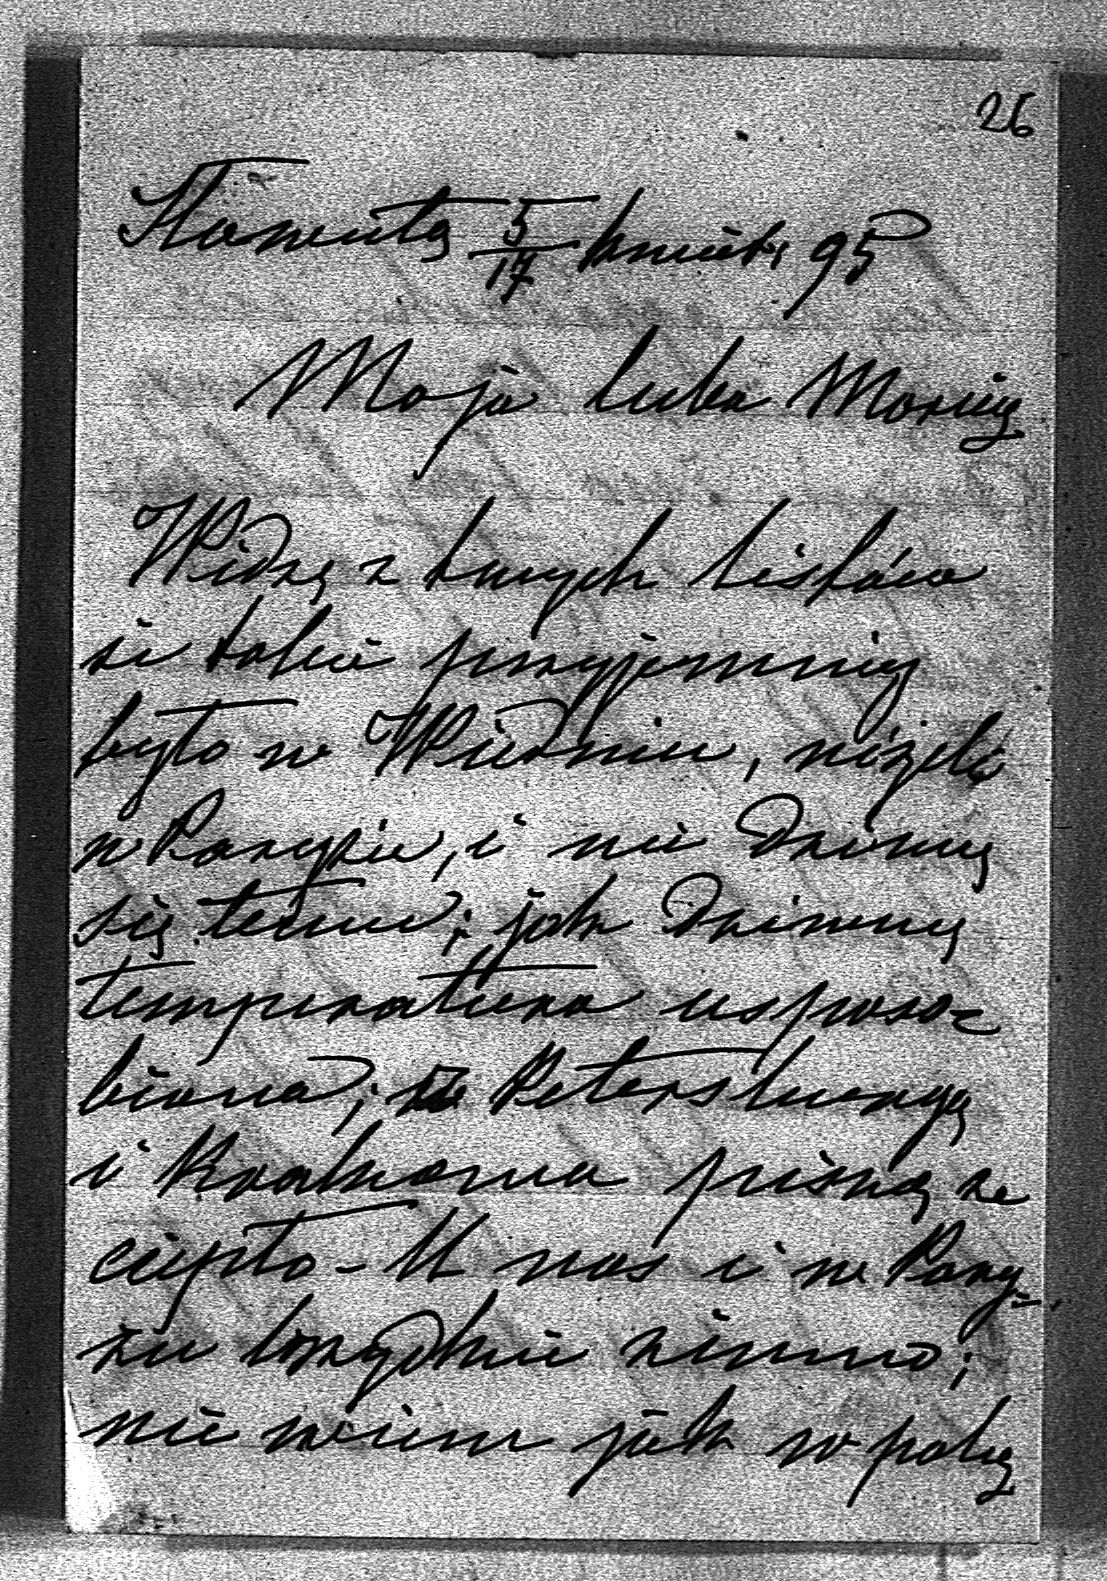 26
Sławuta 5/17 kwiet. 95
Moja luba Moniu
Widzę z twych listów
że tobie przyjemniej
było w Wiedniu, niżeli
w Paryżu, i nie dziwię
się temu; jak dziwnie
temperatura usposo=
biona; z Petersburga
i Krakowa piszą że
ciepło – U nas i w Pary=
żu brzydkie zimno;
nie wiem jak w połu